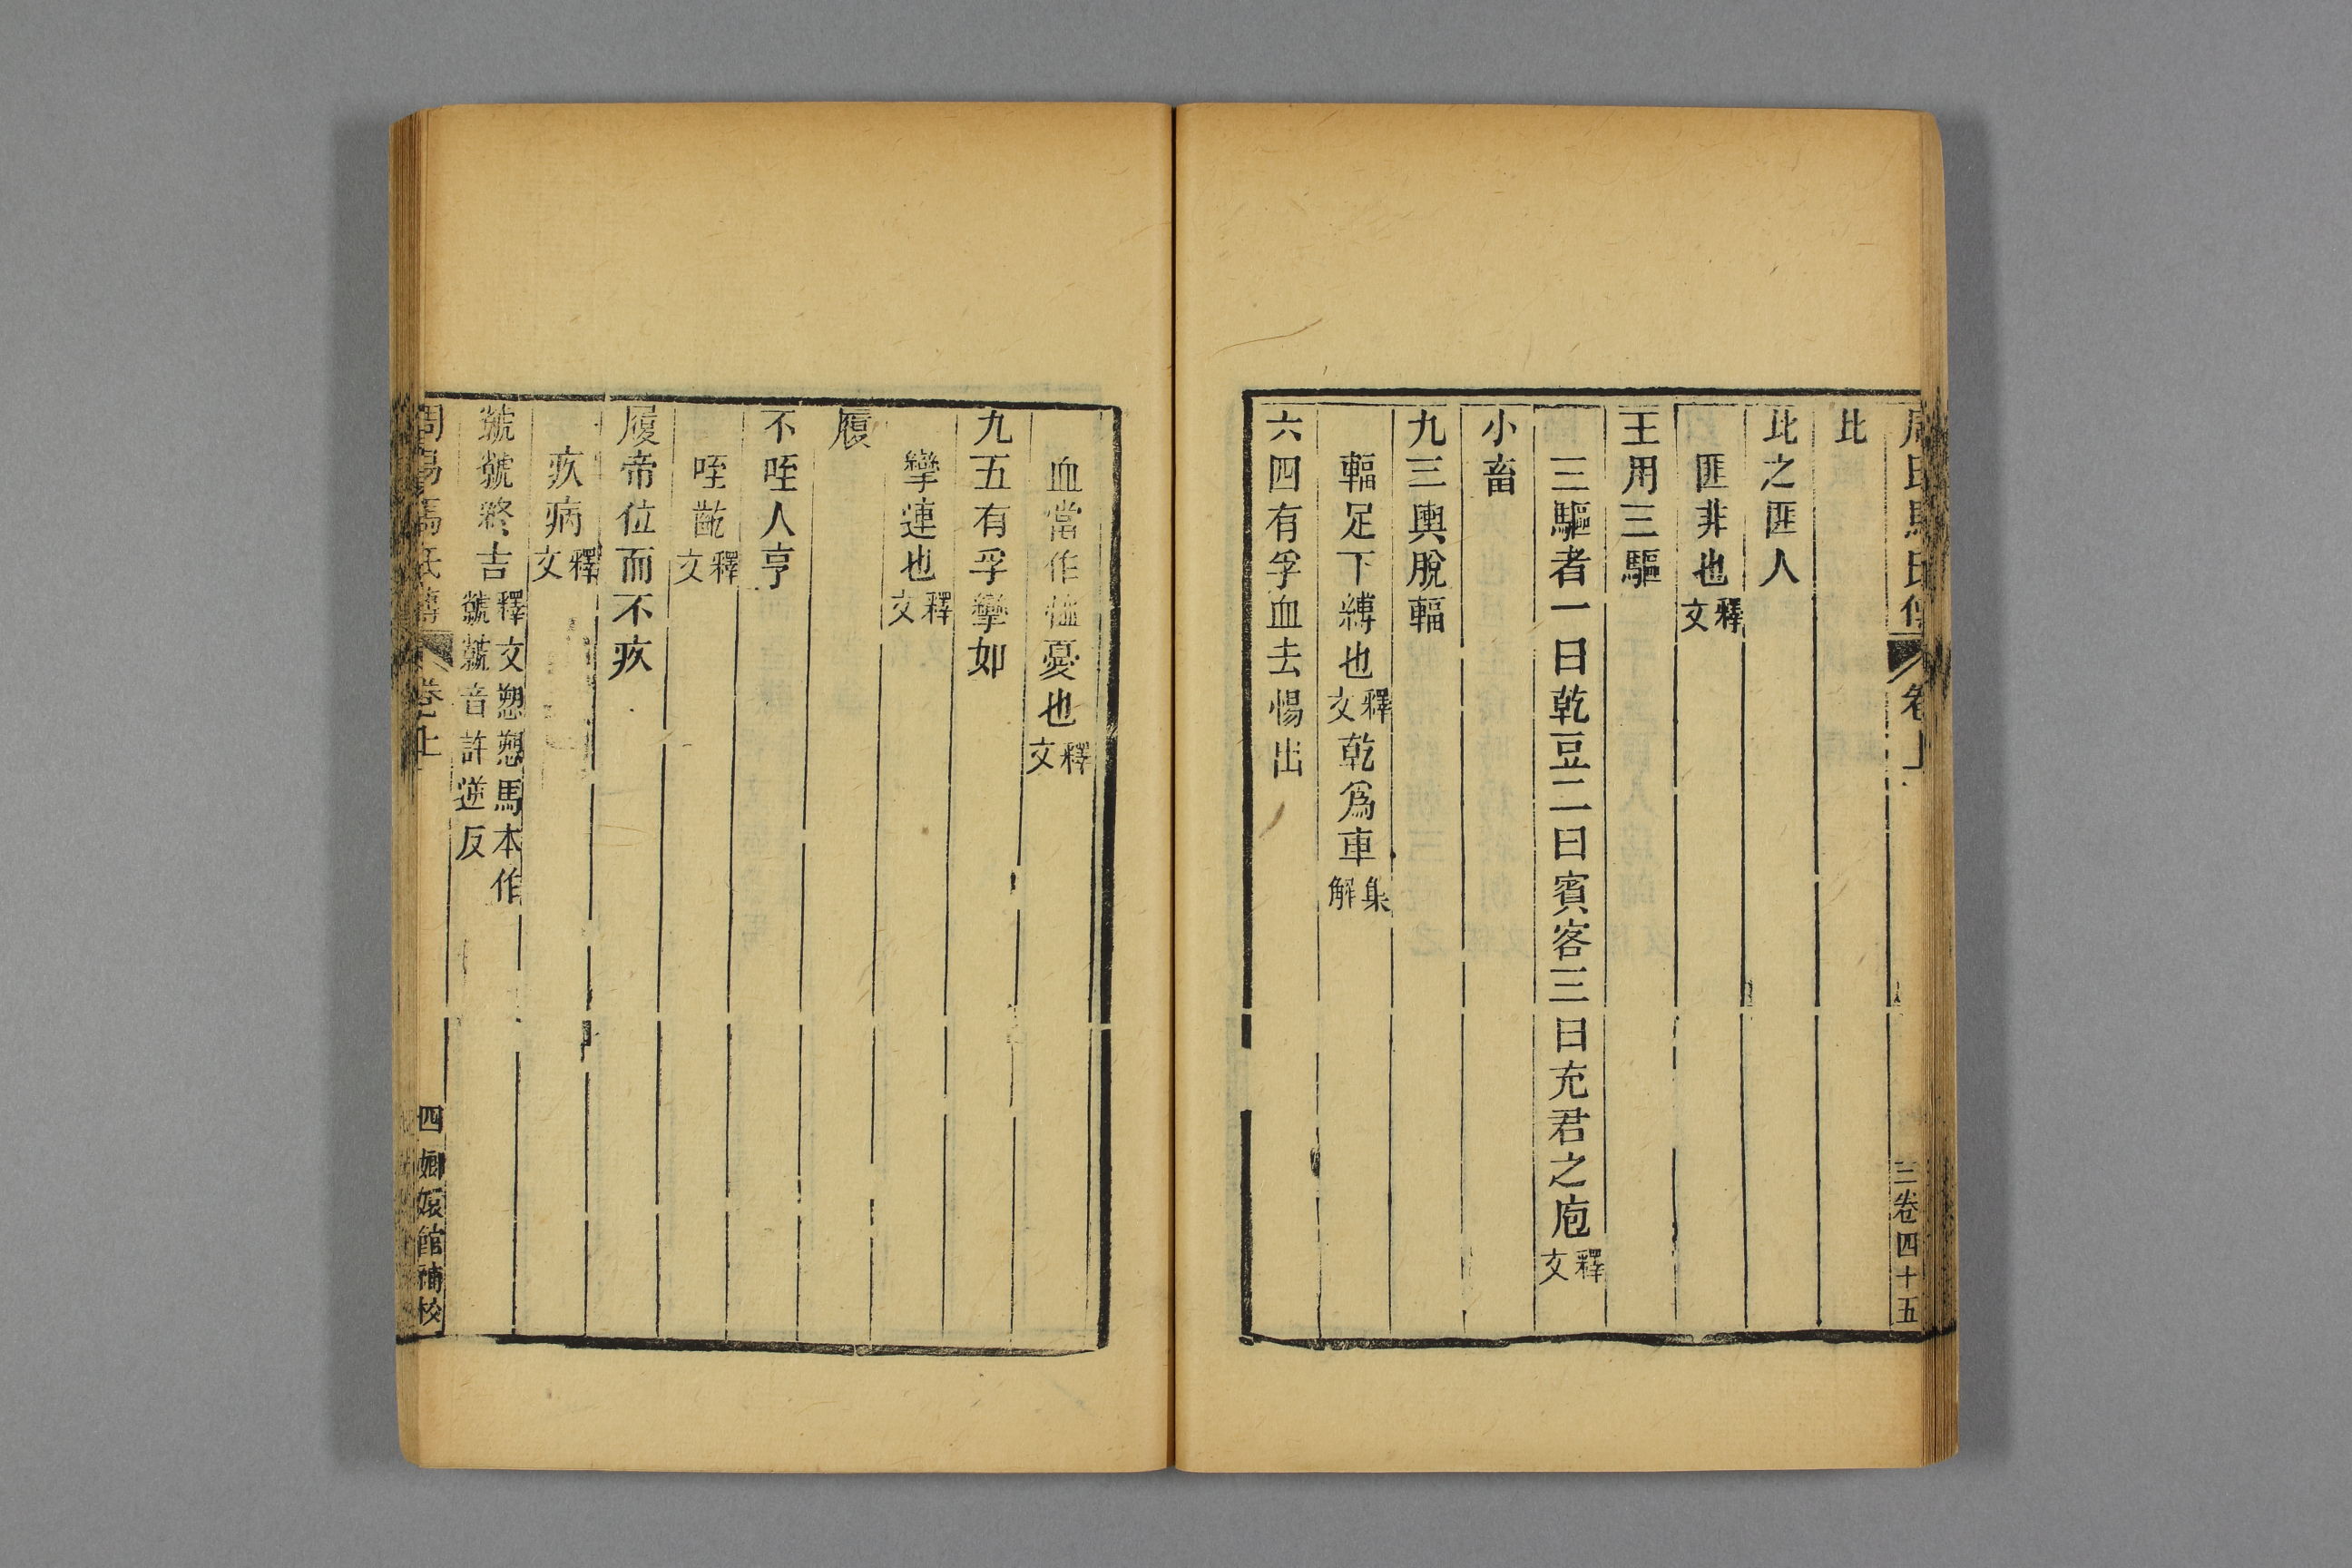 周易馬氏傳 卷上 三卷四十五
比
比之匪人
匪非也釋文
王用三驅
三驅者一曰乾豆二曰賓客三曰充君之庖釋文
小畜
九三輿脫輻
輻足下縛也釋文乾爲車集解
六四有孚血去惕出
血當作恤憂也釋文
九五有孚攣如
攣連也釋文
履
不咥人亨
咥齕釋文
履帝位而不疚
疚病釋文
虩虩終吉釋文愬愬馬本作虩虩音許逆反
周易馬氏傳 卷上 四 嫏嬛館補校